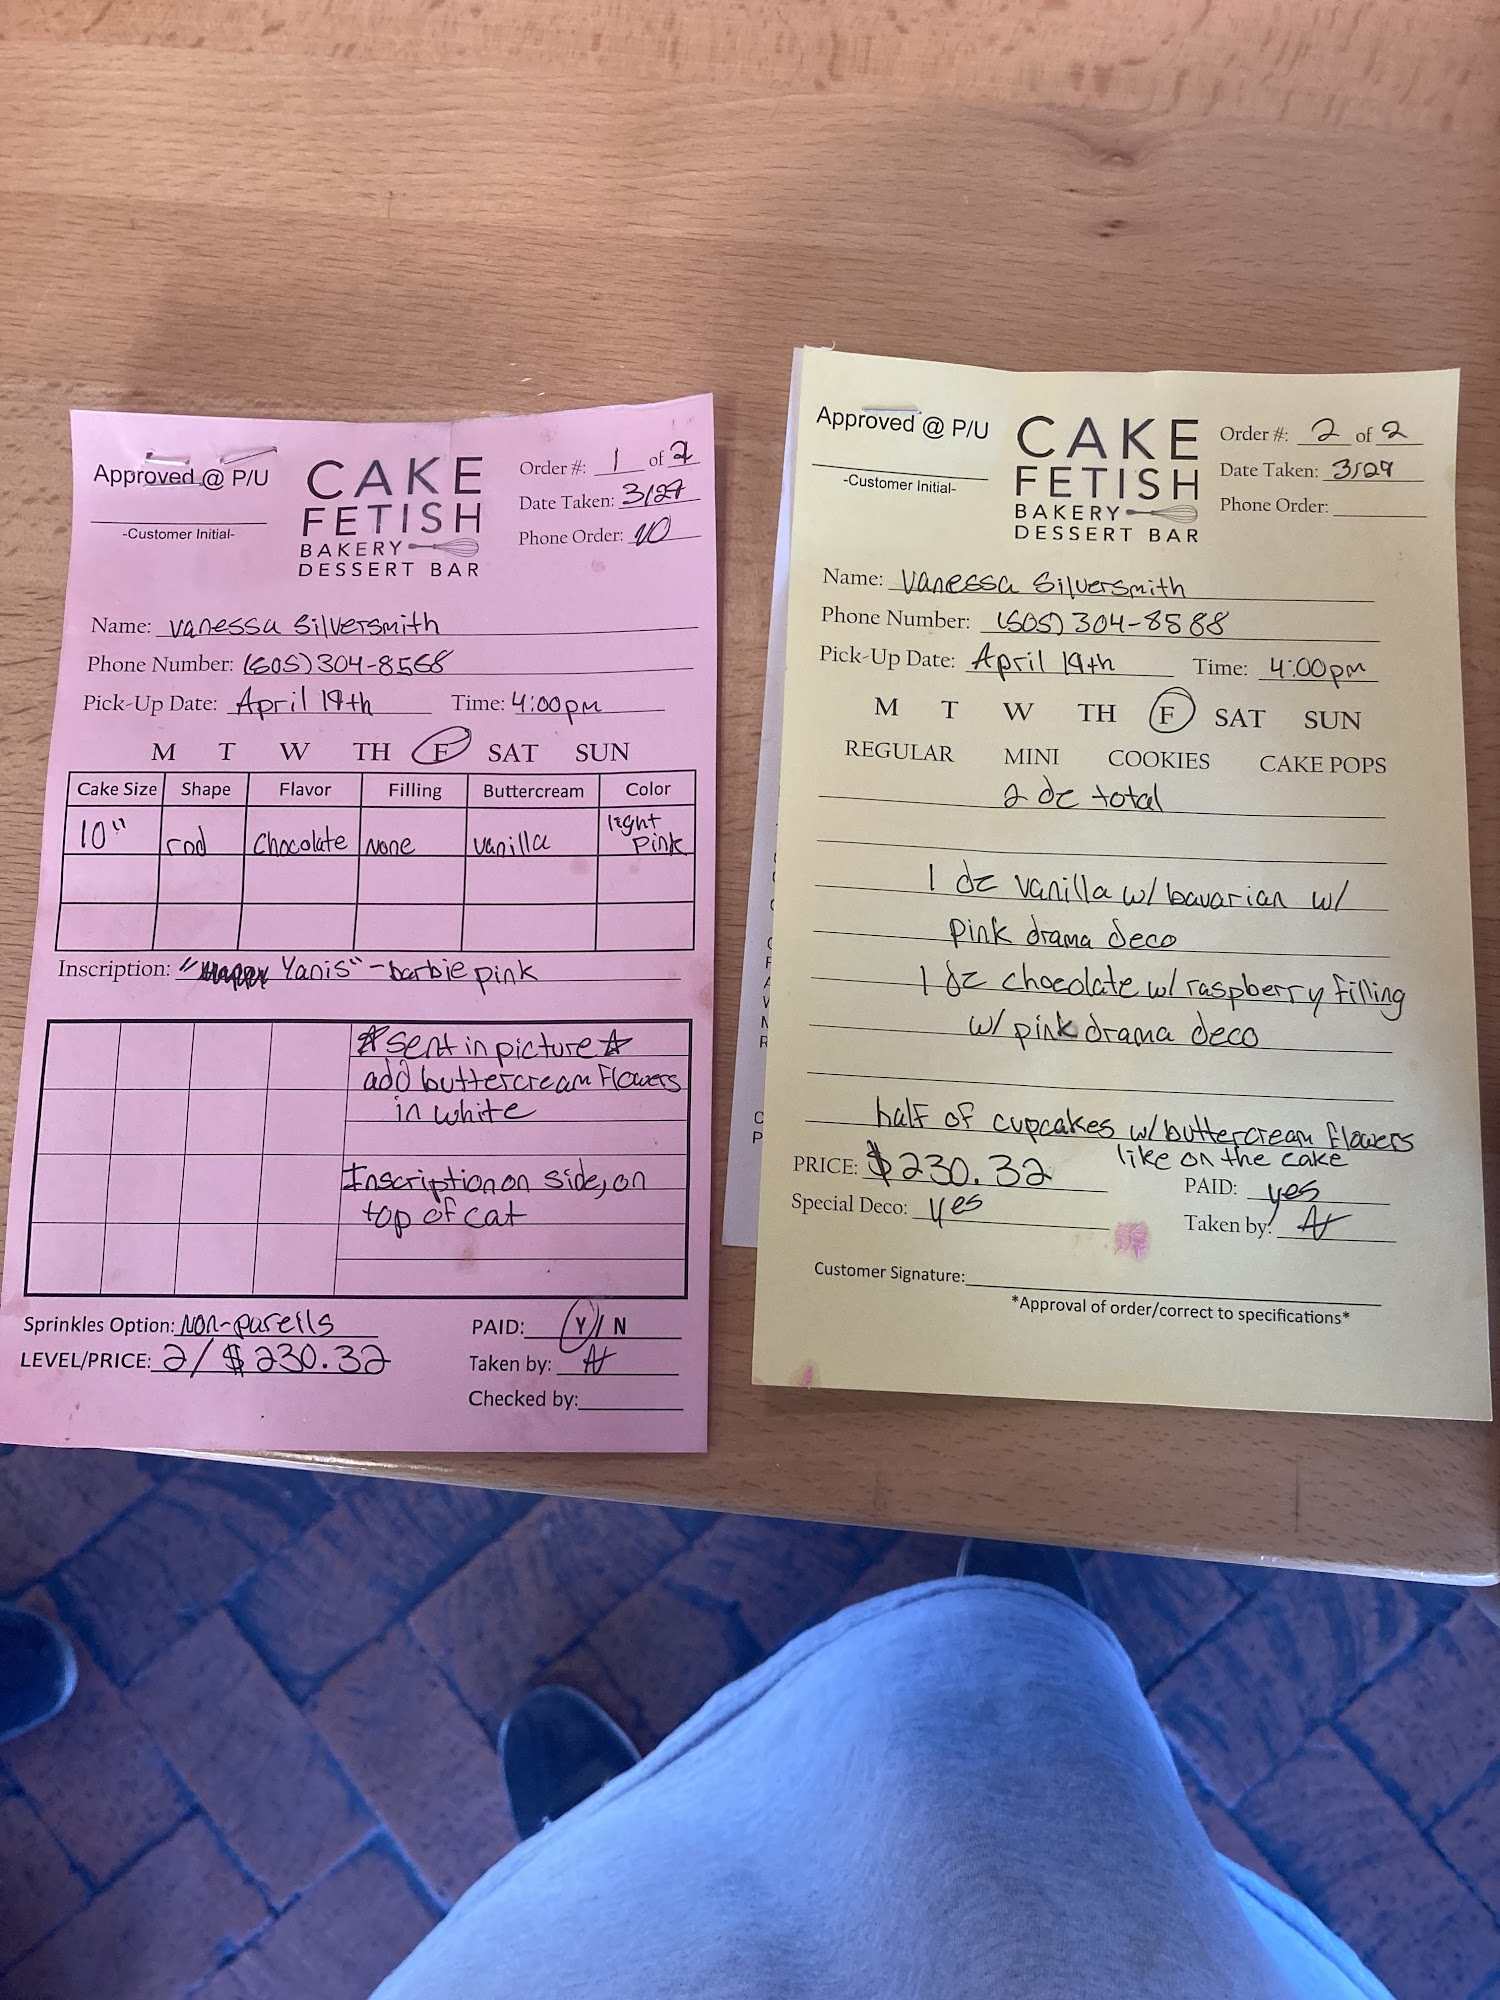 Approved @ P/U
-Customer Initial-
CAKE
FETISH
BAKERY
DESSERT BAR
Order #: 1 of 2
Date Taken: 3/27
Phone Order: NO
Name: Vanessa Silversmith
Phone Number: (505) 304-8568
Pick-Up Date: April 19th Time: 4:00pm
M T W TH F SAT SUN
Cake Size Shape Flavor Filling Buttercream Color
10" rnd Chocolate None Vanilla light pink
Inscription: " Yanis" - barbie pink
☆ sent in picture ☆
add buttercream flowers
in white
Inscription on side, on
top of cat
Sprinkles Option: Non-parells
PAID: Y / N
LEVEL/PRICE: 2 / $230.32
Taken by:
Checked by:
Approved @ P/U
-Customer Initial-
CAKE
FETISH
BAKERY
DESSERT BAR
Order #: 2 of 2
Date Taken: 3/27
Phone Order:
Name: Vanessa Silversmith
Phone Number: (505) 304-8588
Pick-Up Date: April 19th Time: 4:00pm
M T W TH F SAT SUN
REGULAR MINI COOKIES CAKE POPS
2 dz total
1 dz vanilla w/ bavarian w/
pink drama deco
1 dz chocolate w/ raspberry filling
w/ pink drama deco
half of cupcakes w/ buttercream flowers
like on the cake
PRICE: $230.32
PAID: yes
Special Deco: yes
Taken by:
Customer Signature:
*Approval of order/correct to specifications*